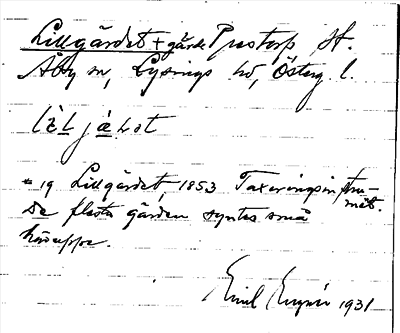 Lillgärdet + gärde Prestorp St.
Åby sn, Lysings hd, Österg. l.
lìljæ̀ɫət
= 19 Lillgärdet, 1853 Taxeringsinstru-
mät.
De flesta gärden syntes små
häruppe.
Emil 1931